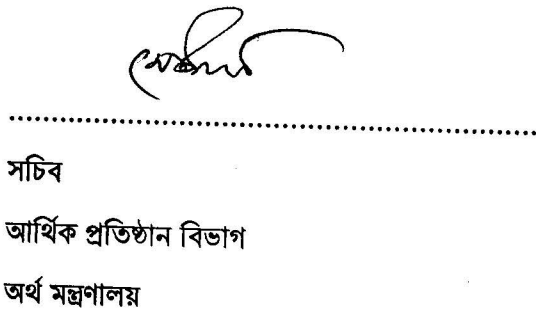 সচিব
আর্থিক প্রতিষ্ঠান বিভাগ
অর্থ মন্ত্রণালয়